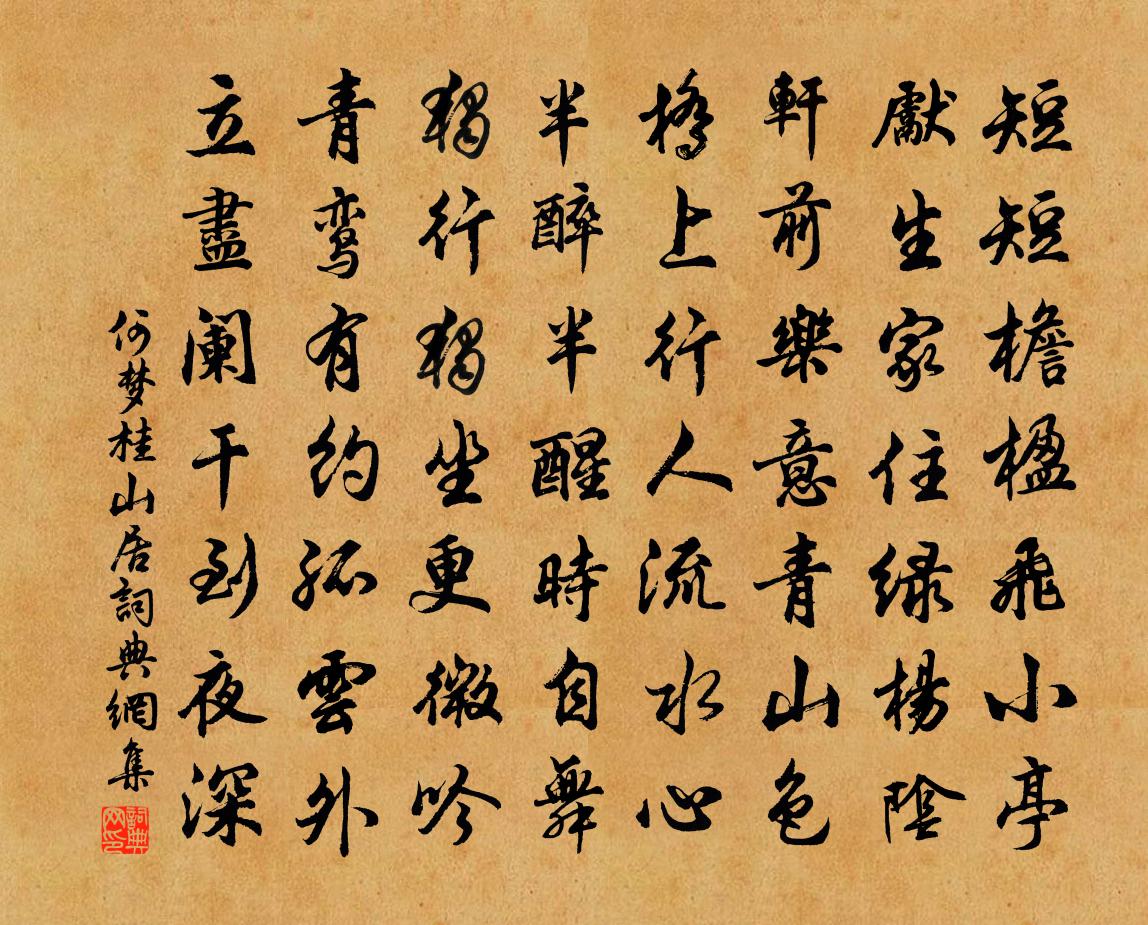 短短檐楹飛小亭
獻生家住绿楊陰
軒前樂意青山色
橋上行人流水心
半醉半醒時自舞
獨行獨坐更微吟
青鸾有約孤雲外
立盡阑干到夜深
何梦桂山居詞典網集
詞典网印